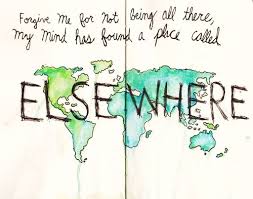 Forgive me for not being all there,
my mind has found a place called
ELSEWHERE